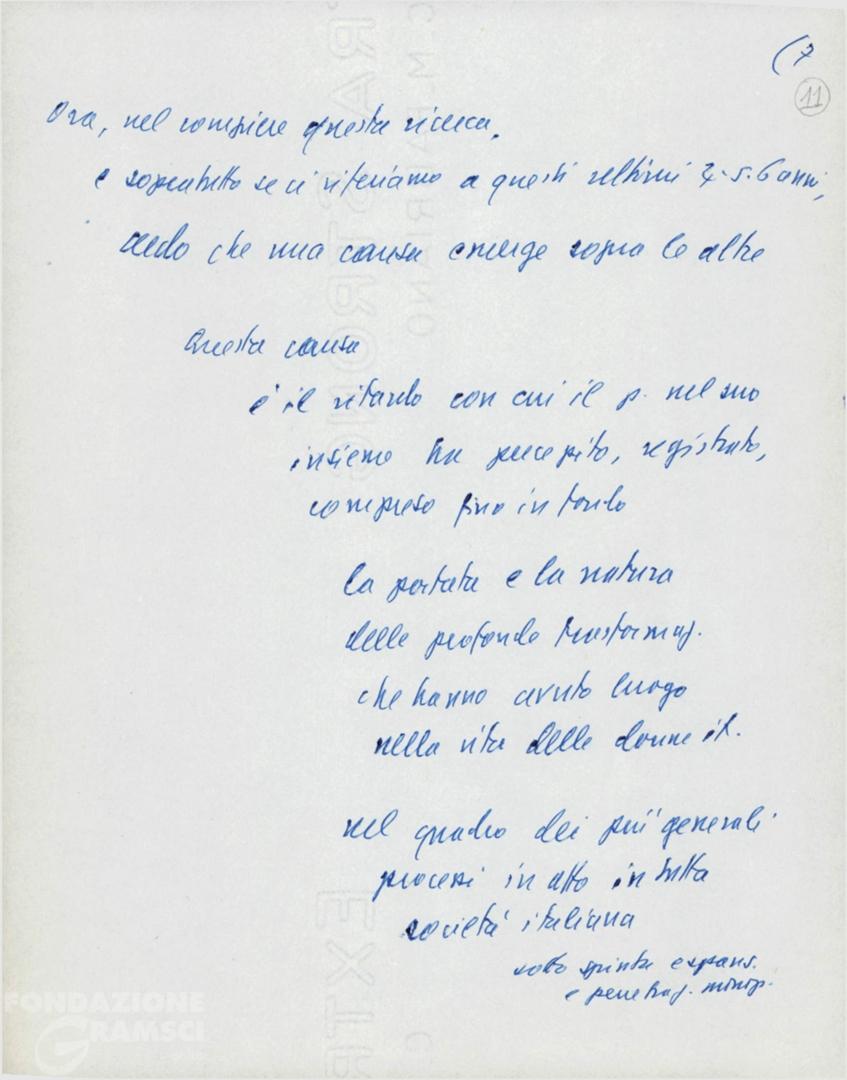 (7
11
Ora, nel compiere questa ricerca,
e soprattutto se ci riferiamo a questi ultimi 4-5-6 anni,
credo che una causa emerge sopra le altre
Questa causa
è il ritardo con cui il p. nel suo
insieme ha percepito, registrato,
compreso fino in fondo
la portata e la natura
delle profonde trasformaz.
che hanno avuto luogo
nella vita delle donne it.
nel quadro dei più generali
processi in atto in tutta
società italiana
sotto spinta espans.
e penetraz. monop.
FONDAZIONE
GRAMSCI